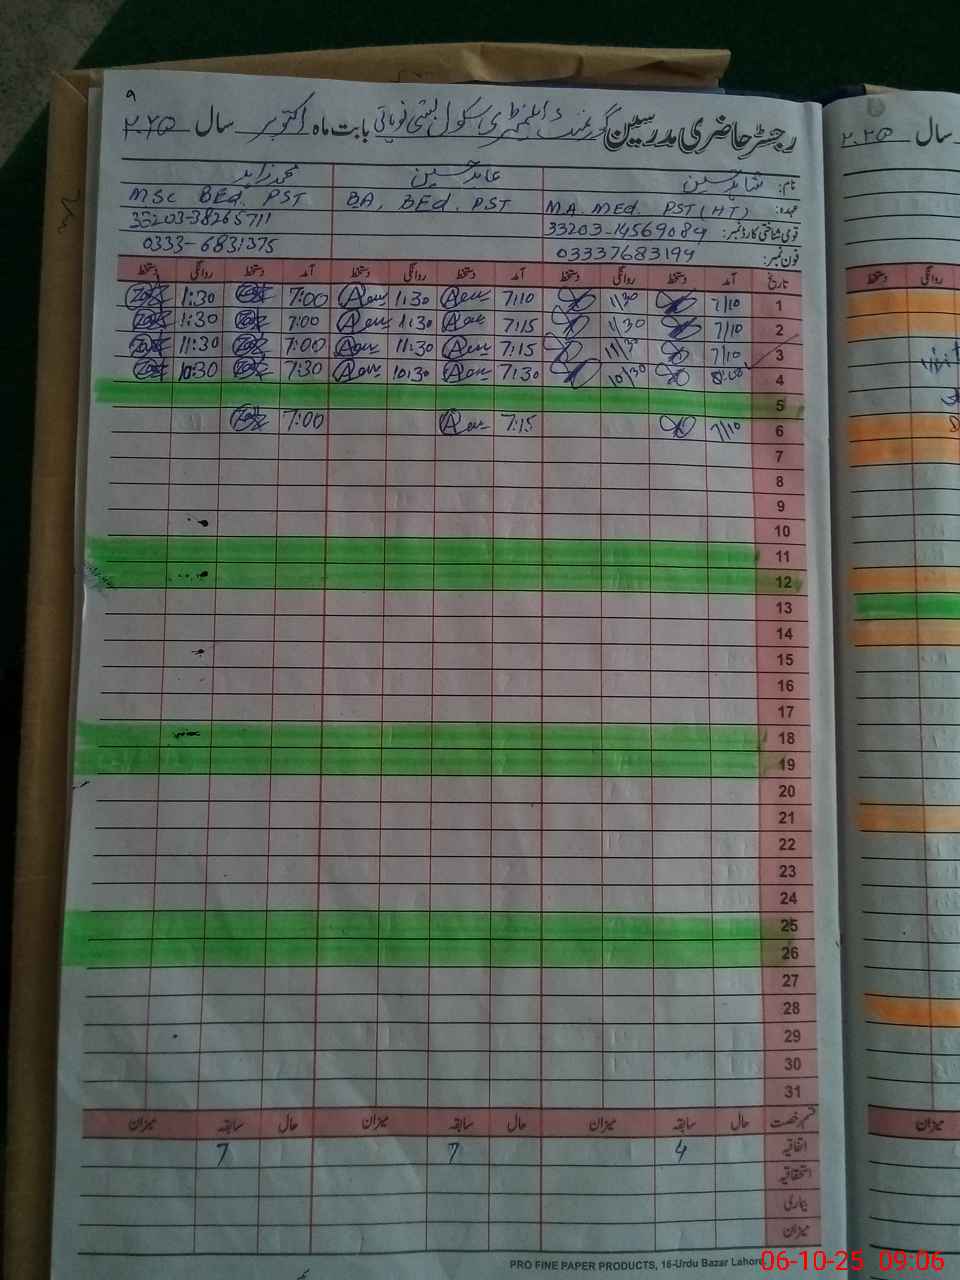 رجسٹر حاضری مدرسین گورنمنٹ ایلیمنٹری سکول بستی نویاتی بابت ماہ اکتوبر سال ۲۰۲۵
نام: شاہد حسین عابد حسین محمد زاہد
عہدہ: M.A. MEd. PST (HT) BA, BEd. PST MSc BEd. PST
قومی شناختی کارڈ نمبر: 33203-14569089 33203-38265711
فون نمبر: 03337683199 0333-6831375
تاریخ آمد دستخط روانگی دستخط آمد دستخط روانگی دستخط آمد دستخط روانگی دستخط
1 7/10 1/30 7:10 1:30 7:00 1:30
2 7/10 1/30 7:15 1:30 7:00 1:30
3 7/10 11/30 7:15 11:30 7:00 11:30
4 10/30 7:30 10:30 7:30 10:30
5
6 7/10 7:15 7:00
7
8
9
10
11
12
13
14
15
16
17
18
19
20
21
22
23
24
25
26
27
28
29
30
31
قسم رخصت حال سابقہ میزان حال سابقہ میزان حال سابقہ میزان
اتفاقیہ 4 7 7
استحقاقیہ
بیماری
میزان
PRO FINE PAPER PRODUCTS, 16-Urdu Bazar Lahore.
سال ۲۰۲۵
روانگی دستخط
میزان
06-10-25 09:06